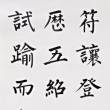 符讓登
歷五紹
試踰而